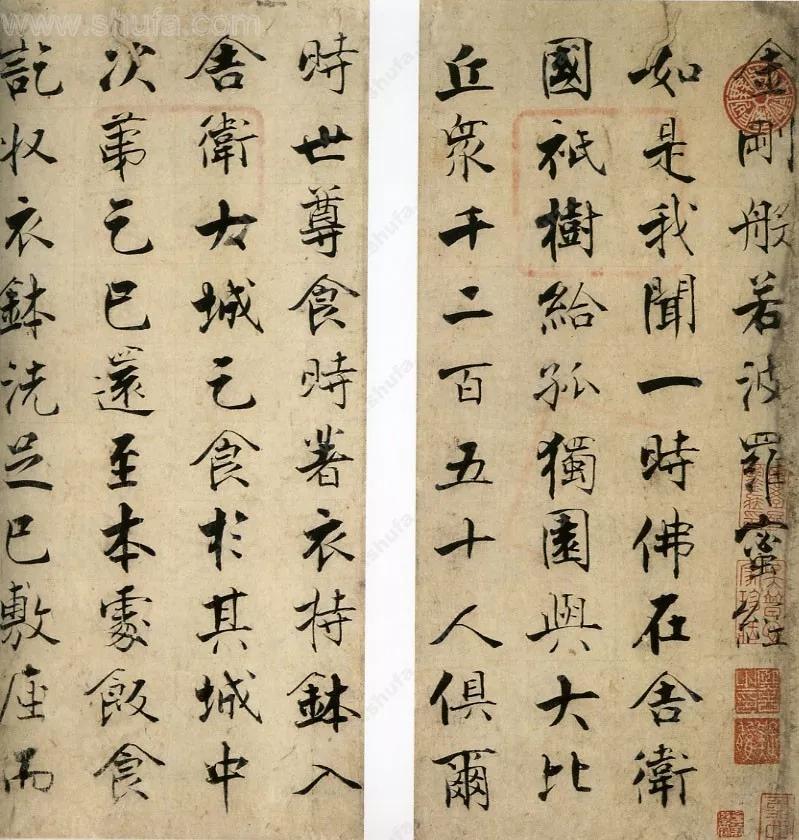 金剛般若波羅蜜經
如是我聞一時佛在舎衛
國祇樹給孤獨園與大比
丘衆千二百五十人俱爾
時世尊食時著衣持鉢入
舎衛大城乞食於其城中
次第乞已還至本處飯食
訖收衣鉢洗足已敷座而
www.shufa.com